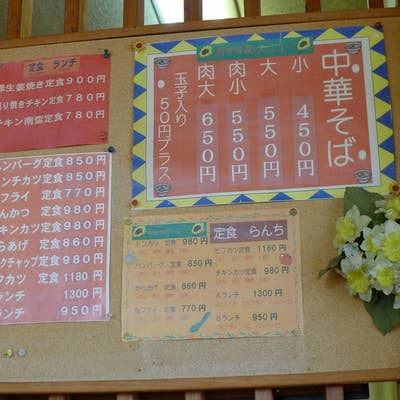 定食 ランチ
生姜焼き定食 900円
焼きチキン定食 780円
チキン南蛮定食 780円
ンバーグ定食 850円
ンチカツ定食 850円
フライ 定食 770円
んかつ 定食 980円
キンカツ定食 980円
らあげ 定食 860円
クチャップ定食 980円
フカツ 定食 1180円
ランチ 1300円
ランチ 950円
中華そば
小 450円
大 550円
肉小 550円
肉大 650円
玉子入り 50円プラス
定食 らんち
トンカツ 定食 980円
ハンバーグ 定食 850円
からあげ 定食 860円
魚フライ 定食 770円
ビフカツ 定食 1180円
チキンカツ定食 980円
Aランチ 1300円
Bランチ 950円